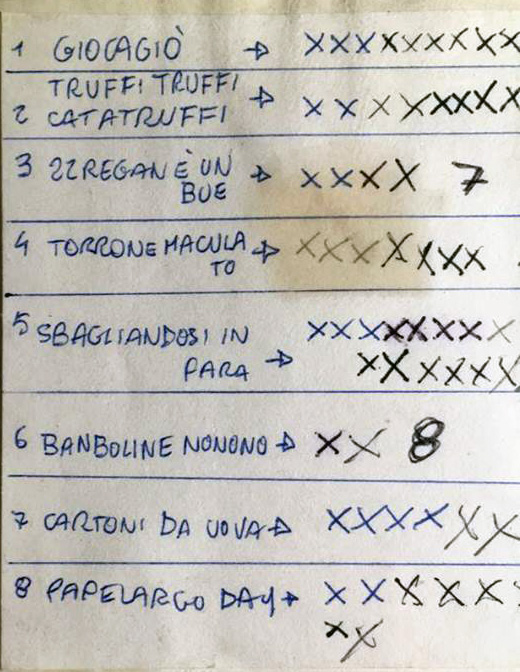 1 GIOCAGIÒ → XXXXXXXXX
TRUFFI TRUFFI
2 CATATRUFFI → XXXXXXXX
3 ZZREGAN È UN → XXXX 7
BUE
4 TORRONE MACULA → XXXXXXX
TO
5 SBAGLIANDOSI IN XXXXXXXX
PARA → XXXXXX
6 BANBOLINE NONONO → XX 8
7 CARTONI DA UOVA → XXXXXX
8 PAPELARGO DAY → XXXXXX
XX